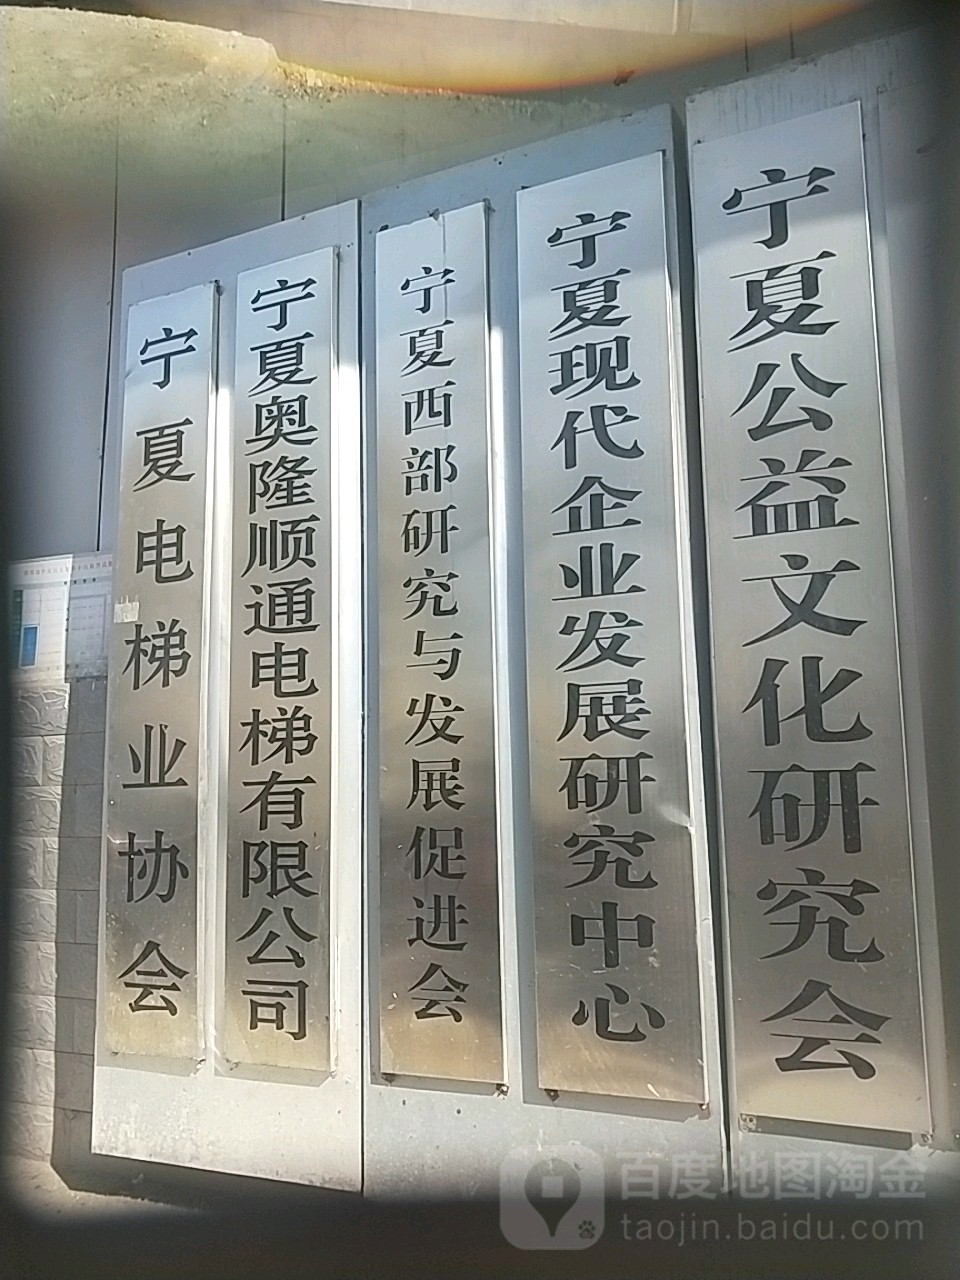 宁夏电梯业协会
宁夏奥隆顺通电梯有限公司
宁夏西部研究与发展促进会
宁夏现代企业发展研究中心
宁夏公益文化研究会
百度地图淘金
taojin.baidu.com